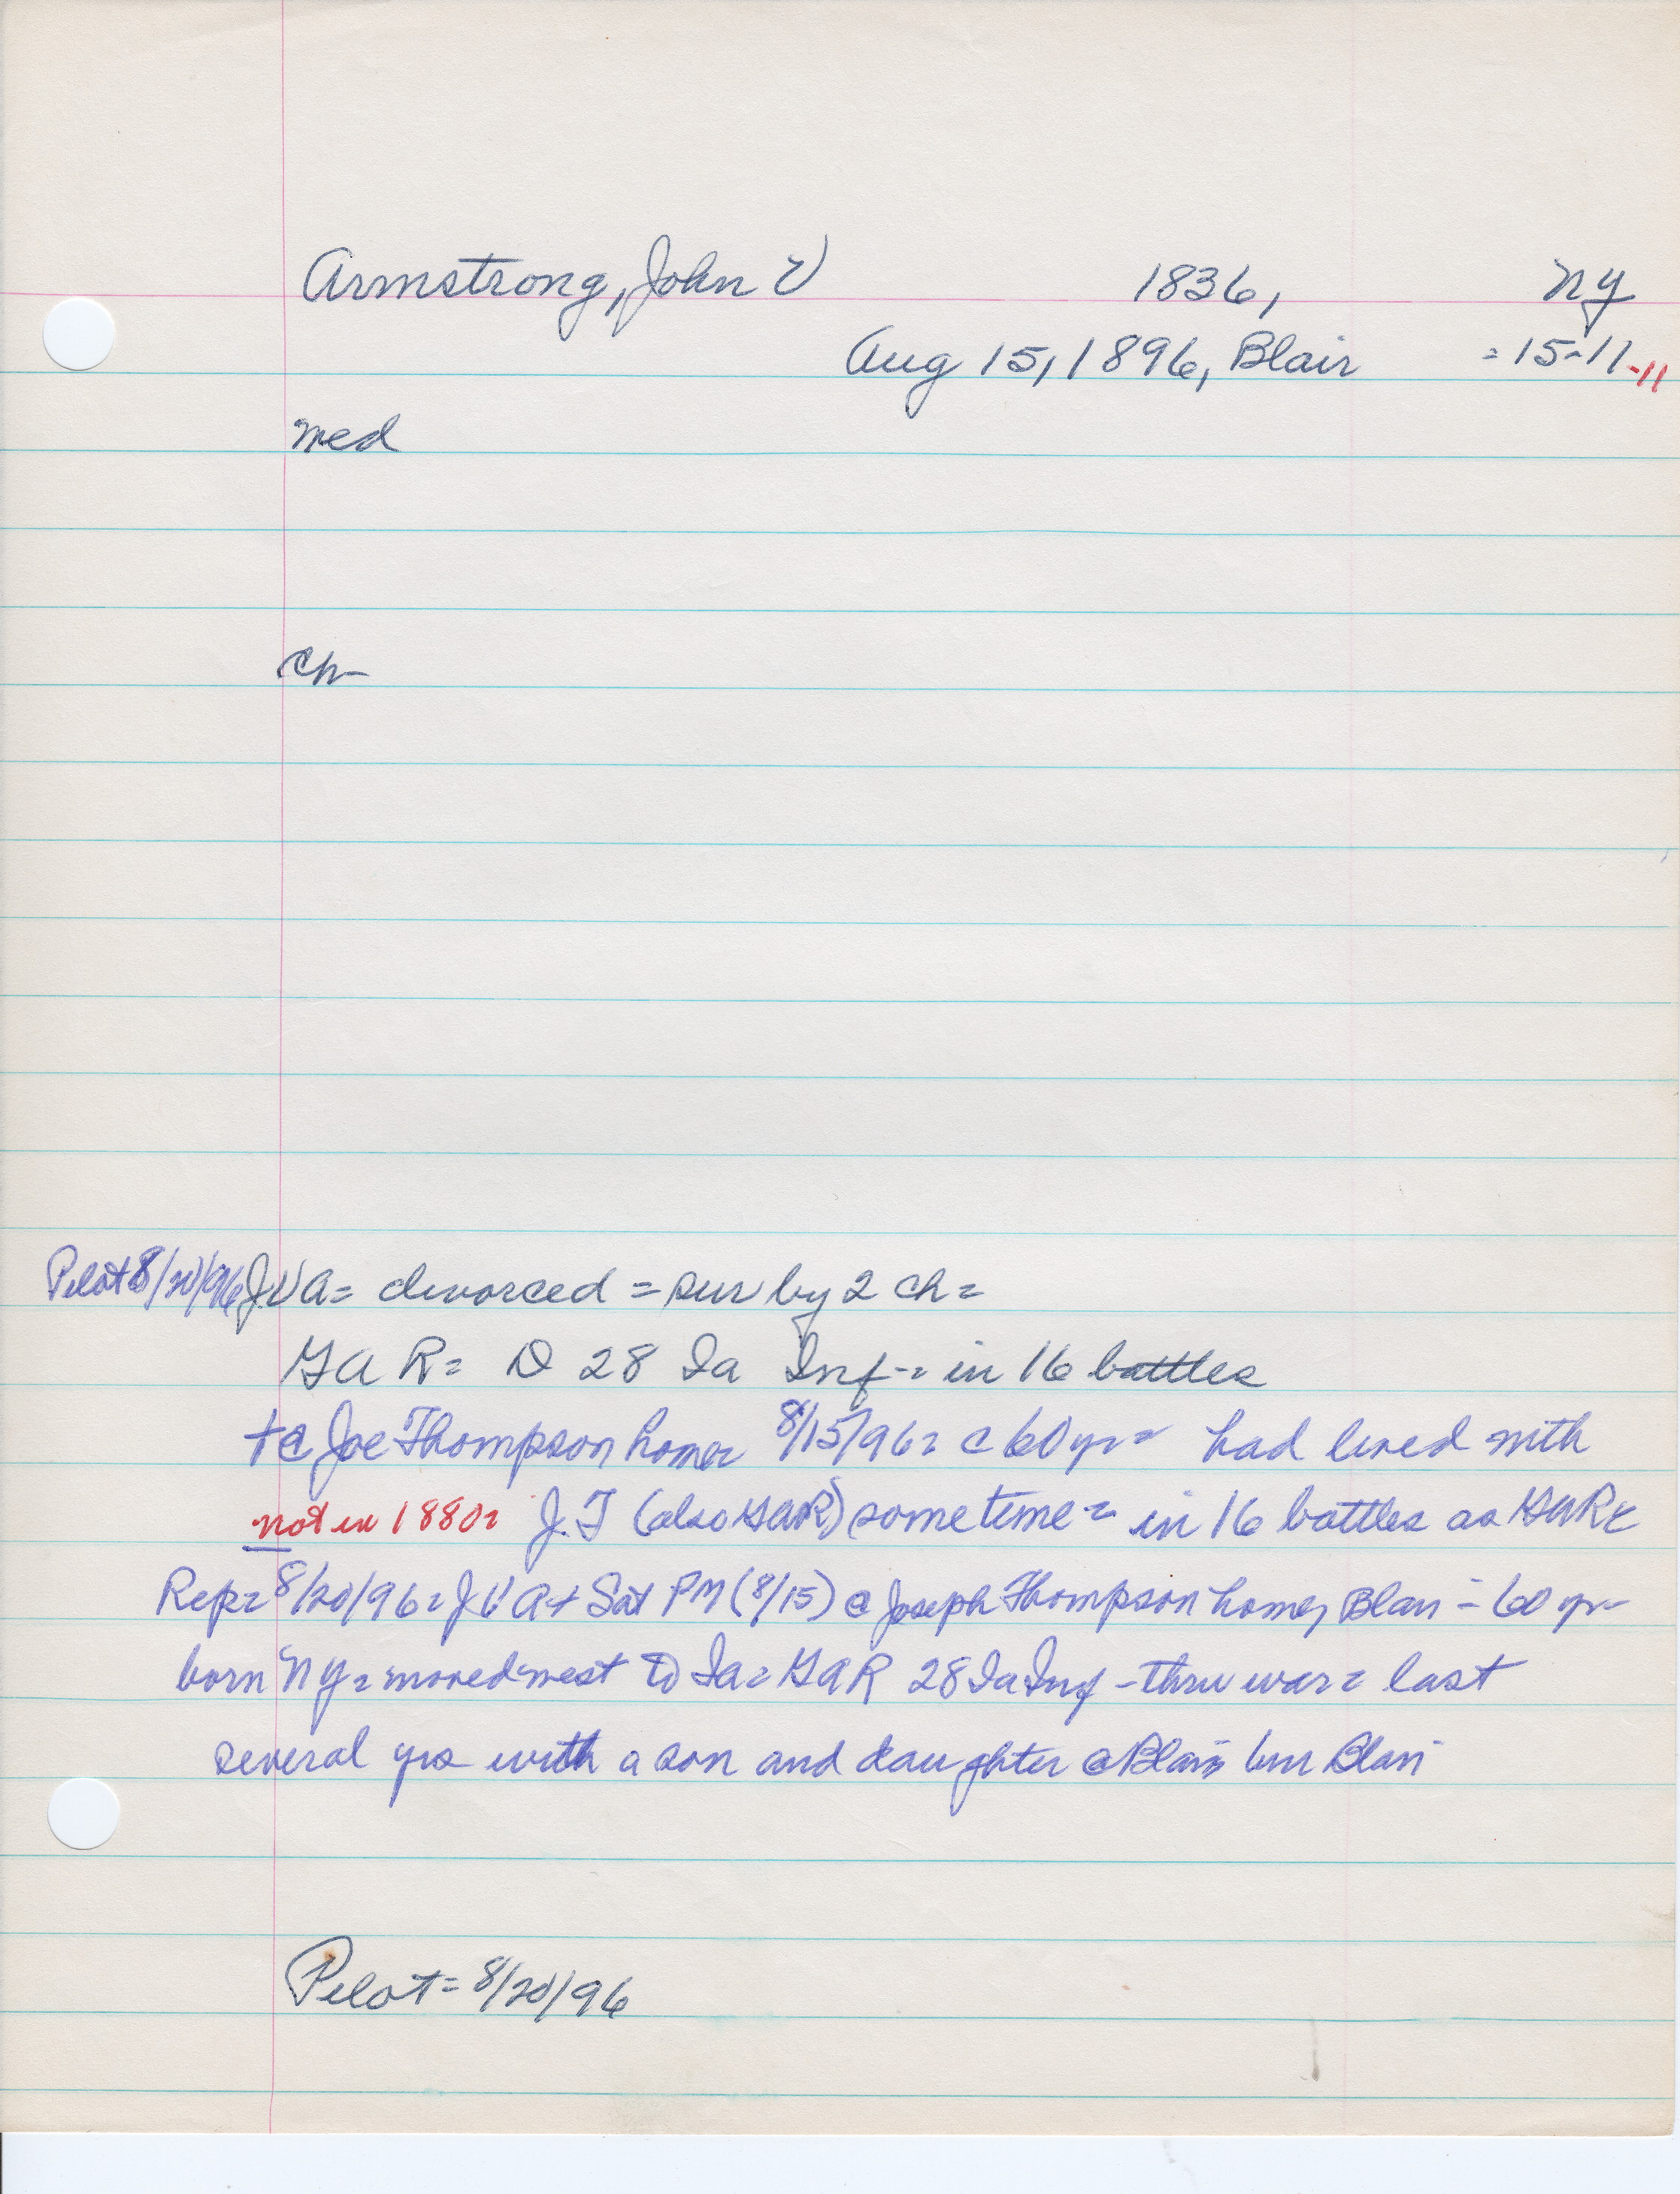 Armstrong, John V 1836, NY
Aug 15, 1896, Blair = 15-11-11
med
ch-
Pilot 8/20/96 JVA= divorced = sur by 2 ch=
GAR= D 28 Ia Inf-= in 16 battles
+@ Joe Thompson home= 8/15/96= c 60 yr= had lived with
not in 1880= J.T (also GAR) sometime= in 16 battles as GAR=
Rep= 8/20/96= JVA + Sat PM (8/15) @ Joseph Thompson home, Blair = 60 yr-
born NY= moved west to Ia= GAR 28 Ia Inf - thru war= last
several yrs with a son and daughter @ Blair= bur Blair
Pilot= 8/20/96